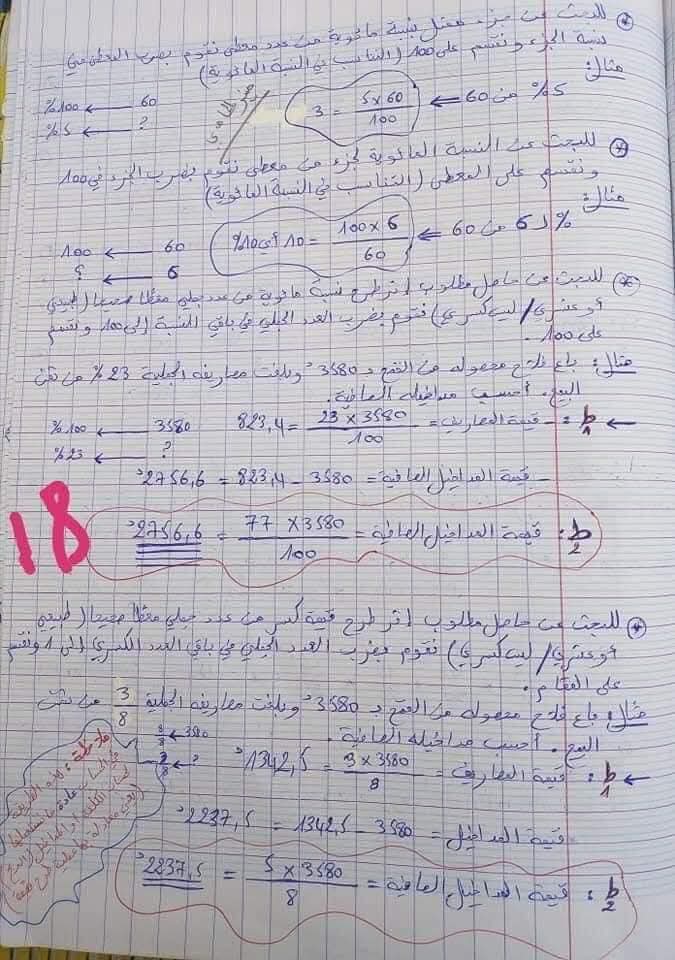 * للبحث عن جزء ممثل بنسبة مائوية من عدد معطى نقوم بضرب المعطى في
نسبة الجزء ونقسم على 100 (التناسب في النسبة المائوية)
مثال:
5% من 60 ⇐ 5 x 60 / 100 = 3
60 ← 100%
? ← 5%
* للبحث عن النسبة المائوية لجزء من معطى نقوم بضرب الجزء في 100
ونقسم على المعطى (التناسب في النسبة المائوية)
مثال:
% لـ 6 من 60 ⇐ 100 x 6 / 60 = 10 أي 10%
60 ← 100
6 ← ?
* للبحث عن حاصل مطلوب إثر طرح نسبة مائوية من عدد جملي معطا صحيحا (طبيعي
أو عشري / ليس كسري) فنقوم بضرب العدد الجملي في باقي النسبة إلى 100 ونقسم
على 100.
مثال: باع فلاح محصوله من القمح بـ 3580د وبلغت مصاريفه الجملية 23% من ثمن
البيع. أحسب مداخيله الصافية.
← ط1: - قيمة المصاريف = 23 x 3580 / 100 = 823,4
3580 ← 100%
? ← 23%
- قيمة المداخيل الصافية = 3580 - 823,4 = 2756,6د
ط2: قيمة المداخيل الصافية = 77 x 3580 / 100 = 2756,6د
18
* للبحث عن حاصل مطلوب إثر طرح قيمة كسر من عدد جملي معطا صحيحا (طبيعي
أو عشري / ليس كسري) نقوم بضرب العدد الجملي في باقي العدد الكسري إلى 1 ونقسم
على المقام.
مثال: باع فلاح محصوله من القمح بـ 3580د وبلغت مصاريفه الجملية 3/8 من ثمن
البيع. أحسب مداخيله الصافية.
← ط1: قيمة المصاريف = 3 x 3580 / 8 = 1342,5د
قيمة المداخيل = 3580 - 1342,5 = 2237,5د
ط2: قيمة المداخيل الصافية = 5 x 3580 / 8 = 2237,5د
ملاحظة: هذه الطريقة